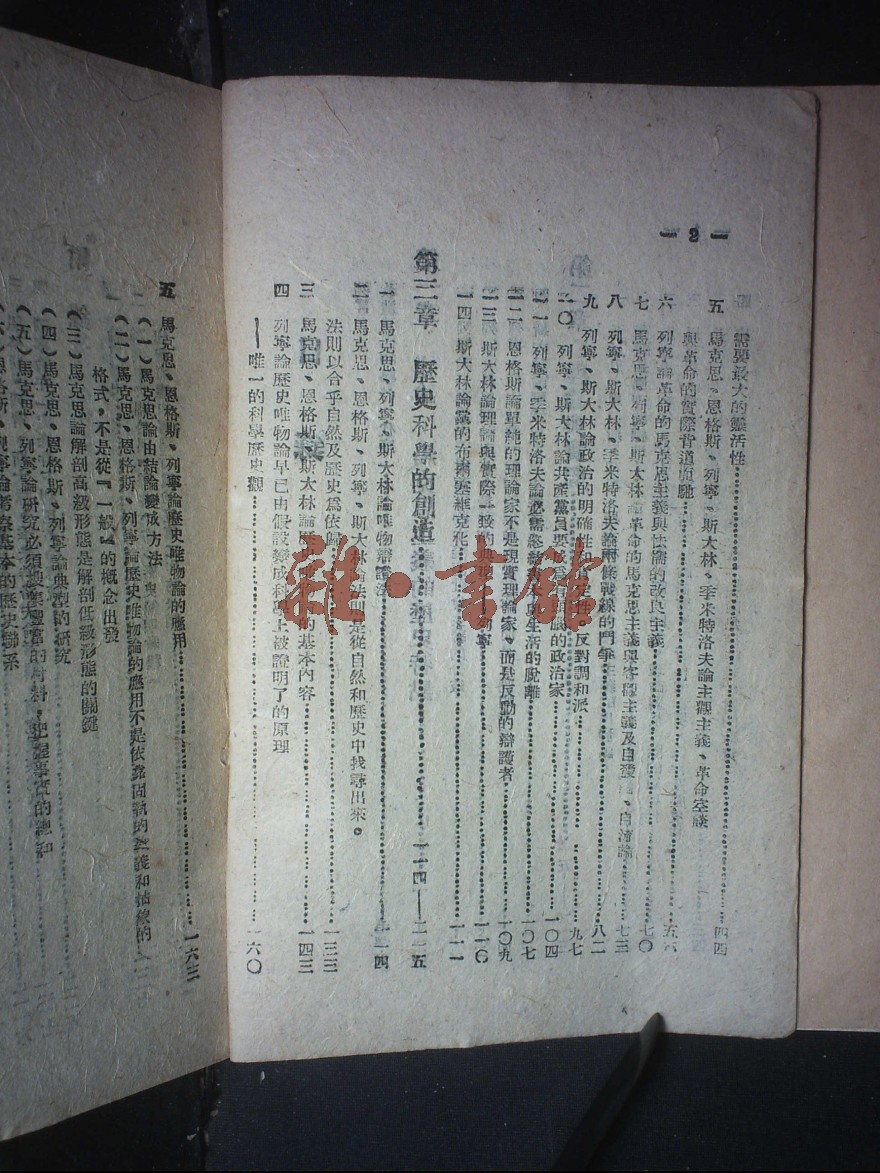 — 2 —
需要最大的靈活性
五 馬克思、恩格斯、列寧、斯大林、季米特洛夫論主觀主義、革命空談
與革命的實際背道而馳……四四
六 列寧論革命的馬克思主義與怯懦的改良主義……五六
七 馬克思、列寧、斯大林論革命的馬克思主義與客觀主義及自發 、自流論……七〇
八 列寧、斯大林、季米特洛夫論兩條戰線的鬥爭……七三
九 列寧、斯大林論政治的明確性和 定性 反對調和派……八二
一〇 列寧、斯大林論共產黨員要成 有 的政治家……九七
一一 列寧、季米特洛夫論必需 結 與生活的脫離……一〇四
一二 恩格斯論單純的理論家不是現實理論家、而是反動的辯護者……一〇七
一三 斯大林論理論與實際一致的典 列寧……一〇九
一四 斯大林論黨的布爾塞維克化……一一
第三章 歷史科學的創造……一一四——二二五
一 馬克思、列寧、斯大林論唯物辯證法……一一四
二 馬克思、恩格斯、列寧、斯大林論法則是從自然和歷史中找尋出來。
法則以合乎自然及歷史爲依歸……一三三
三 馬克思、恩格斯、斯大林論歷史 的基本內容……一四三
四 列寧論歷史唯物論早已由假設變成科學上被證明了的原理
——唯一的科學歷史觀……一六〇
五 馬克思、恩格斯、列寧論歷史唯物論的應用……一六三
(一)馬克思論由結論變成方法
(二)馬克思、恩格斯、列寧論歷史唯物論的應用不是依靠固執的 和 的
格式,不是從『一般』的概念出發
(三)馬克思論解剖高級形態是解剖低級形態的關鍵
(四)馬克思、恩格斯、列寧論典型的研究
(五)馬克思、列寧論研究必須搜集豐富的材料,把握事實的總和
(六)恩格斯、列寧論考察基本的歷史聯系
雜·書館